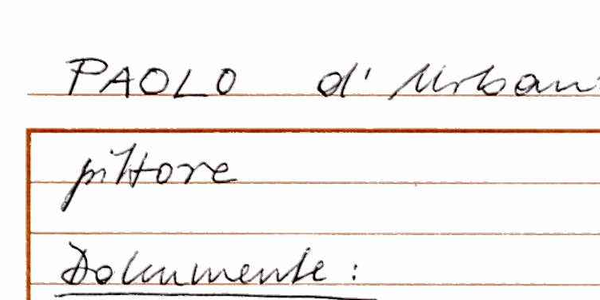 PAOLO d' Urban
pittore
Dokumente: